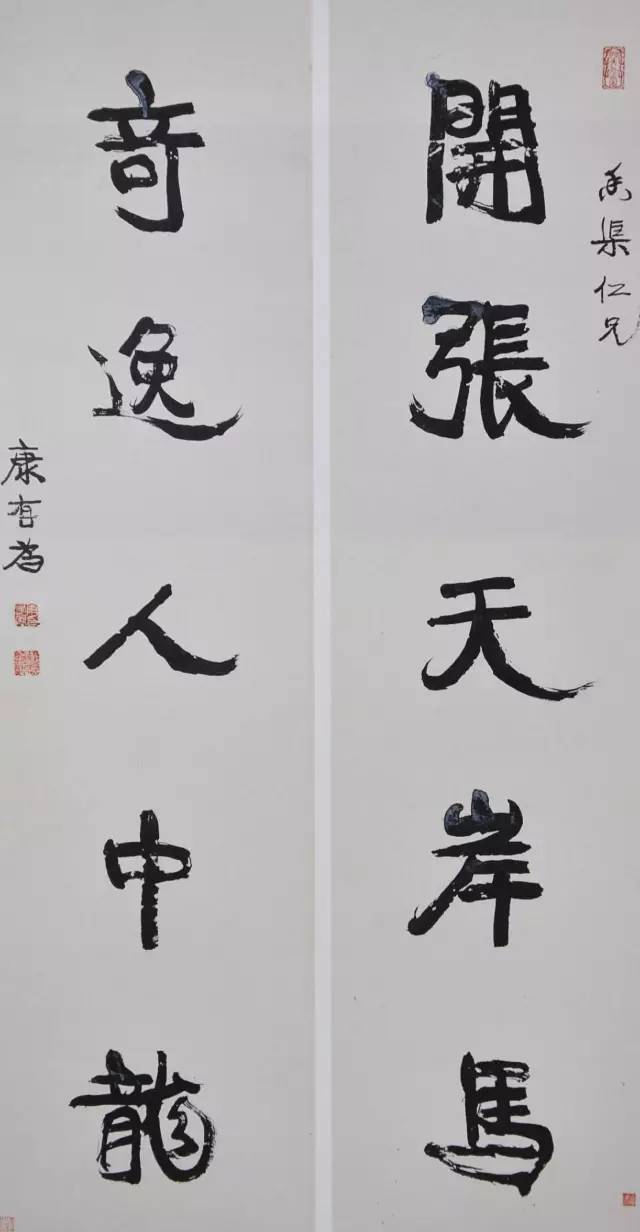 渠仁兄
開張天岸馬
奇逸人中龍
康有為